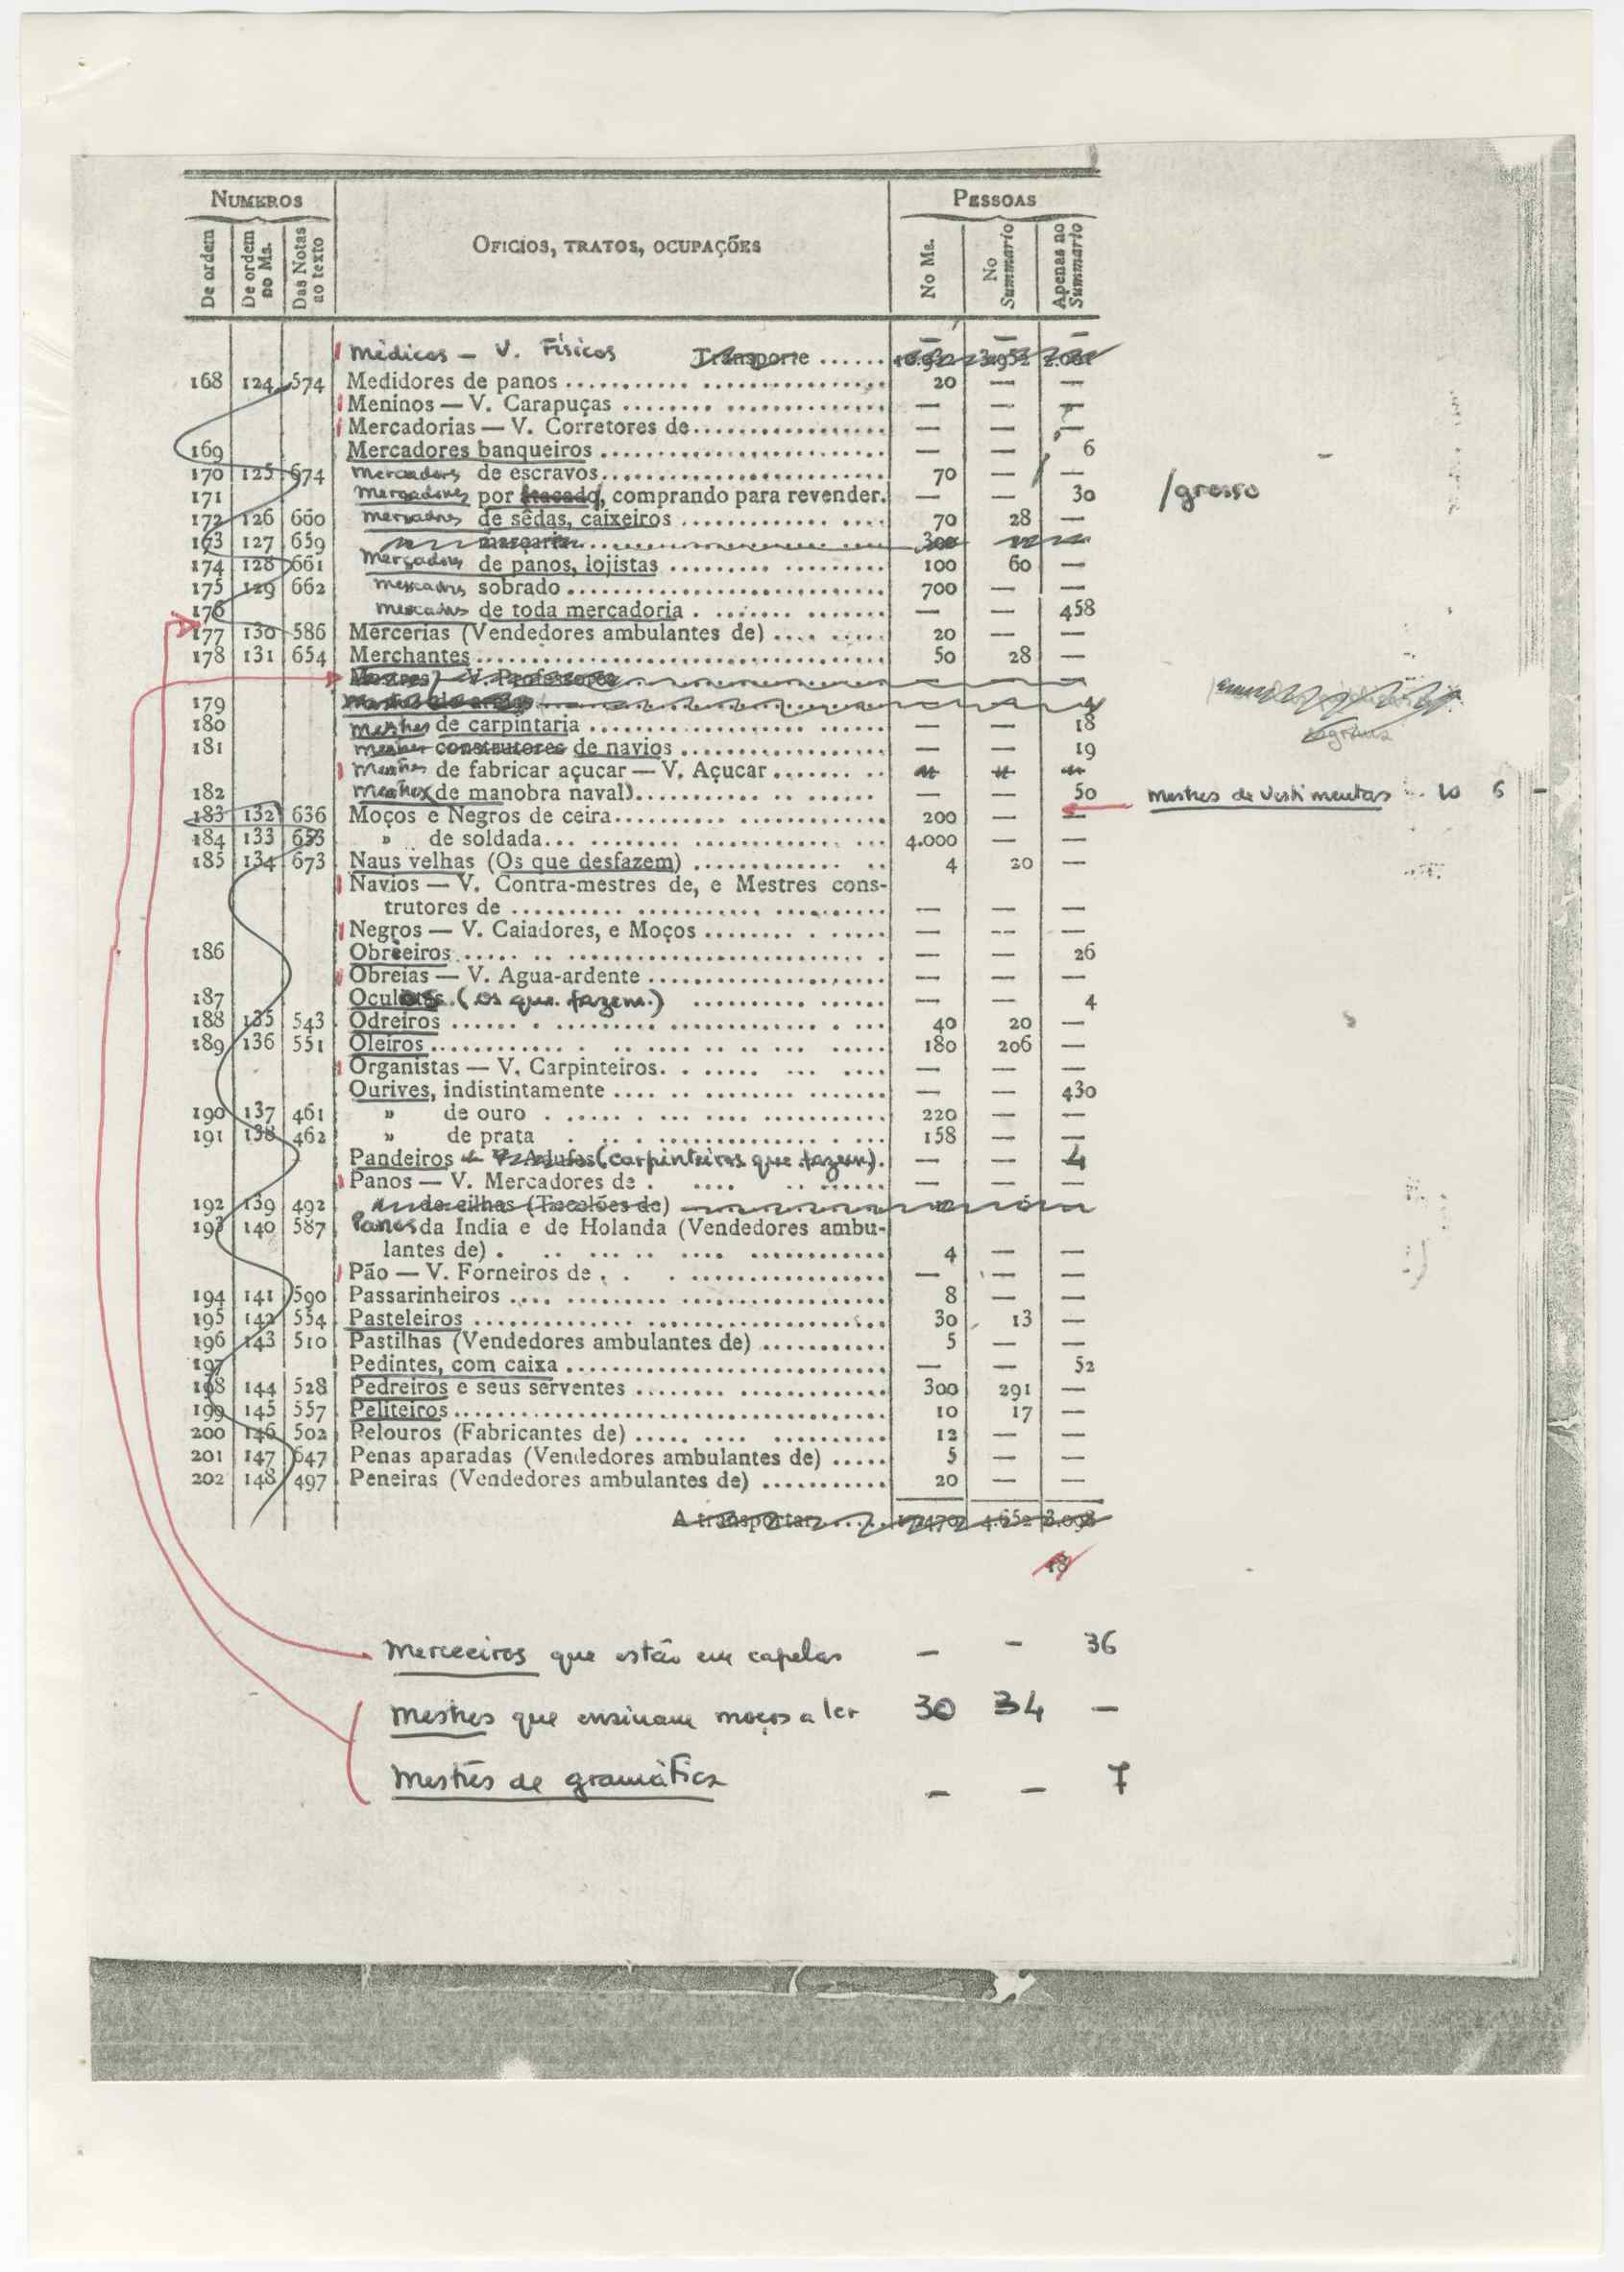 NUMEROS
PESSOAS
De ordem
De ordem no Ms.
Das Notas ao texto
OFICIOS, TRATOS, OCUPAÇÕES
No Ms.
No Summario
Apenas no Summario
Médicos — V. Físicos Transporte ...... — — —
168 124 574 Medidores de panos ........... 20 — —
Meninos — V. Carapuças ........ — — —
Mercadorias — V. Corretores de ........ — — —
169 Mercadores banqueiros ........ — — 6
170 125 674 mercadores de escravos ........ 70 — —
171 mercadores por , comprando para revender. — — 30 /grosso
172 126 660 mercadores de sêdas, caixeiros ........ 70 28 —
173 127 659 300
174 128 661 mercadores de panos, lojistas ........ 100 60 —
175 129 662 mercadores sobrado ........ 700 — —
176 mercadores de toda mercadoria ........ — — 458
177 130 586 Mercerias (Vendedores ambulantes de) ........ 20 — —
178 131 654 Merchantes ........ 50 28 —
Mestres) — V. Professores
179
180 mestres de carpintaria ........ — — 18
181 mestres construtores de navios ........ — — 19
mestres de fabricar açucar — V. Açucar ........
182 mestres (de manobra naval) ........ — — 50
mestres de vestimentas .. 10 6 —
183 132 636 Moços e Negros de ceira ........ 200 — —
184 133 653 » de soldada ........ 4.000 — —
185 134 673 Naus velhas (Os que desfazem) ........ 4 20 —
Navios — V. Contra-mestres de, e Mestres cons-
trutores de ........ — — —
Negros — V. Caiadores, e Moços ........ — — —
186 Obreeiros ........ — — 26
Obreias — V. Agua-ardente ........ — — —
187 Oculos (os que fazem) ........ — — 4
188 135 543 Odreiros ........ 40 20 —
189 136 551 Oleiros ........ 180 206 —
Organistas — V. Carpinteiros ........ — — —
Ourives, indistintamente ........ — — 430
190 137 461 » de ouro ........ 220 — —
191 138 462 » de prata ........ 158 — —
Pandeiros — V. Adufes (carpinteiros que fazem). — — 4
Panos — V. Mercadores de ........ — — —
192 139 492
193 140 587 Panos da India e de Holanda (Vendedores ambu-
lantes de) ........ 4 — —
Pão — V. Forneiros de ........ — — —
194 141 590 Passarinheiros ........ 8 — —
195 142 554 Pasteleiros ........ 30 13 —
196 143 510 Pastilhas (Vendedores ambulantes de) ........ 5 — —
197 Pedintes, com caixa ........ — — 52
198 144 528 Pedreiros e seus serventes ........ 300 291 —
199 145 557 Peliteiros ........ 10 17 —
200 146 502 Pelouros (Fabricantes de) ........ 12 — —
201 147 647 Penas aparadas (Vendedores ambulantes de) ..... 5 — —
202 148 497 Peneiras (Vendedores ambulantes de) ........ 20 — —
A transportar ......
Merceeiros que estão em capelas — — 36
Mestres que ensinam moços a ler 30 34 —
Mestres de gramática — — 7